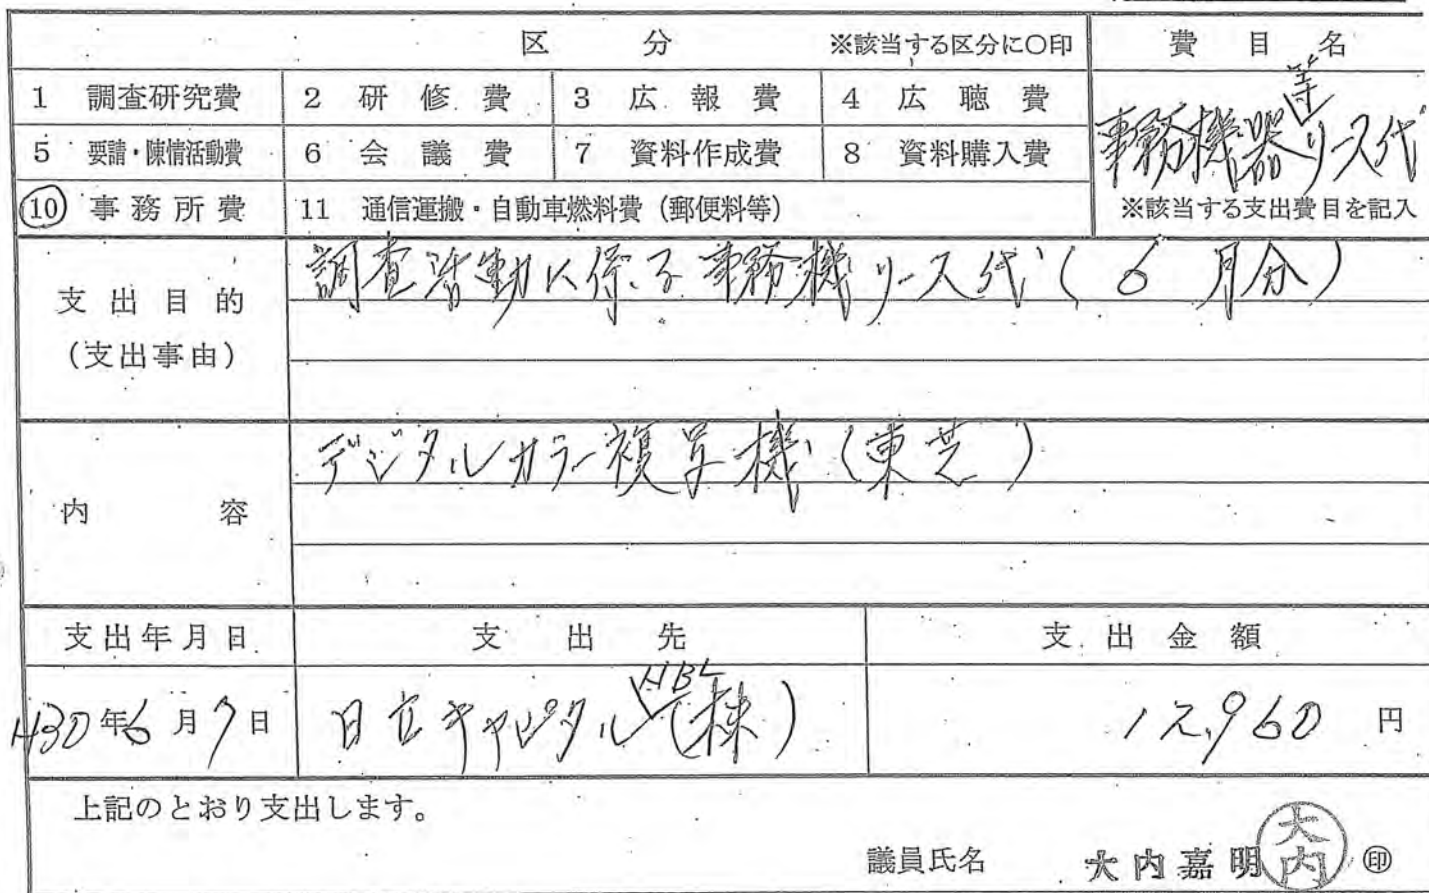 区 分 ※該当する区分に○印 費目名
1 調査研究費 2 研修費 3 広報費 4 広聴費
5 要請・陳情活動費 6 会議費 7 資料作成費 8 資料購入費
事務機器等リース代
10 事務所費 11 通信運搬・自動車燃料費(郵便料等) ※該当する支出費目を記入
支出目的
(支出事由)
調査活動に係る事務機リース代(6月分)
内容
デジタルカラー複写機(東芝)
支出年月日 支出先 支出金額
H30年6月7日 日立キャピタルNBL(株) 12,960円
上記のとおり支出します。
議員氏名 大内嘉明 大内 ㊞